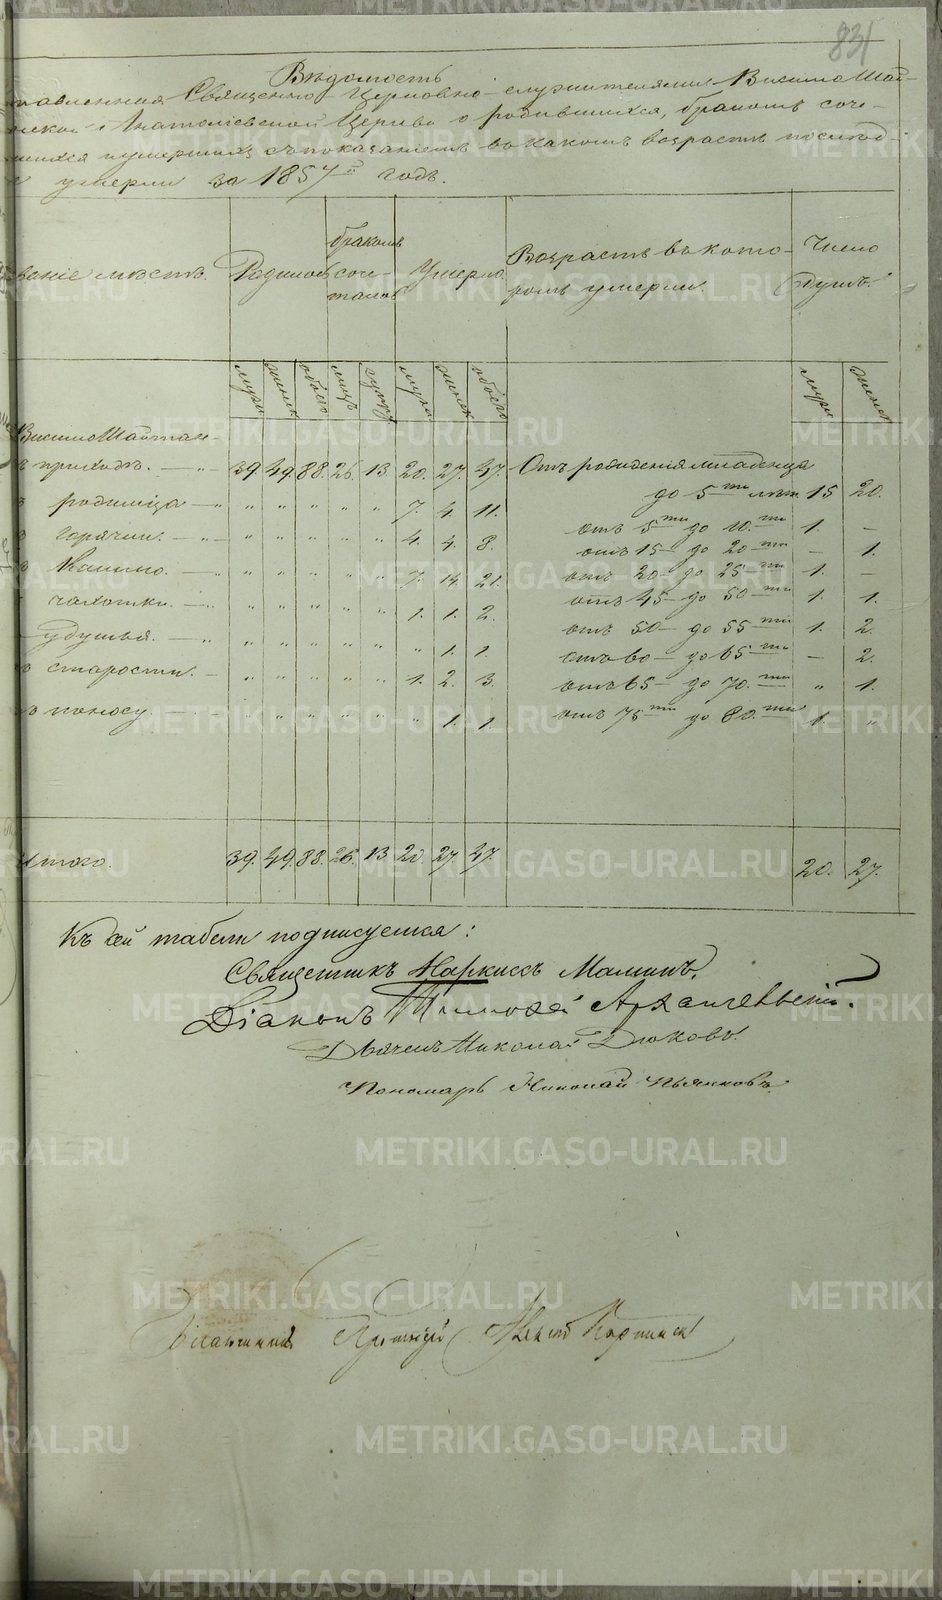 831
Вѣдомость
тавленная Священно-Церковно-служителями Висимо Шай-
нской Анатоліевской Церкви о родившихся, бракомъ соче-
шихся и умершихъ съ показаніемъ въ какомъ возрастѣ
умерли за 1857й годъ.
вание мѣстъ. Родилось бракомъ сочеталось Умерло Возрастъ въ кото- ромъ умерли. Число Душъ.
муж женск обоего лицъ супру муж женск обоего муж женск
Висимо Шайтан-
приходѣ. — " 39. 49. 88. 26. 13 20. 27. 47. Отъ рожденія младенца
до 5ти лѣтъ 15 20.
родимца — " " " " " " 7. 4. 11.
отъ 5ти до 10.ти 1. —
горячки. — " " " " " " 4. 4. 8.
отъ 15 — до 20 —ти — 1.
" " " " " 7. 14. 21.
отъ 20 — до 25 —ти 1. —
чахотки. — " " " " " " 1. 1. 2.
отъ 45 — до 50 —ти 1. 1.
удушья. — " " " " " " " 1. 1.
отъ 50 — до 55 —ти 1. 2.
отъ 60 — до 65 —ти — 2.
старости. — " " " " " 1. 2. 3.
отъ 65 — до 70.—ти " 1.
поносу. — " " " " " " 1. 1.
отъ 75ти до 80.—ти 1. "
Итого. 39. 49. 88. 26. 13 20. 27. 47. 20. 27.
Къ сей табели подписуемся:
Священникъ Наркиссъ Маминъ.
Діаконъ Тимофей Архангельскій.
Дьячекъ Николай Дюковъ.
Пономарь Николай Пьянковъ.
METRIKI.GASO-URAL.RU